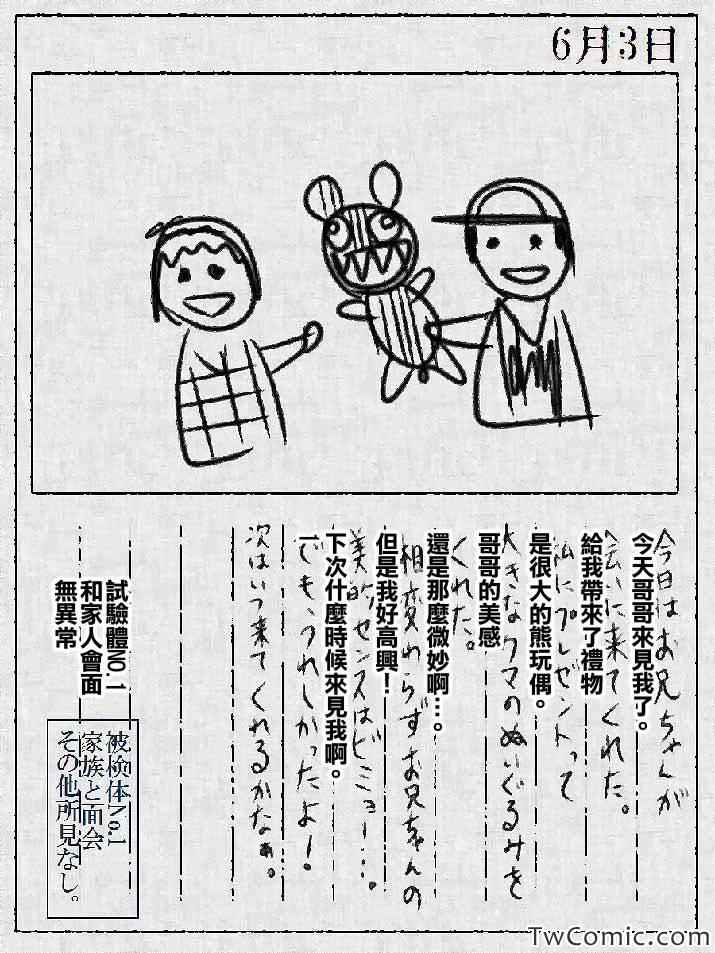 6月3日
今日はお兄ちゃんが
会いに来てくれた。
私にプレゼントって
大きなクマのぬいぐるみを
くれた。
相変わらずお兄ちゃんの
美的センスはビミョー…。
でも、うれしかったよー！
次はいつ来てくれるかなぁ。
今天哥哥來見我了。
給我帶來了禮物
是很大的熊玩偶。
哥哥的美感
還是那麼微妙啊…。
但是我好高興！
下次什麼時候來見我啊。
試驗體NO.1
和家人會面
無異常
被検体No.1
家族と面会
その他所見なし。
TwComic.com